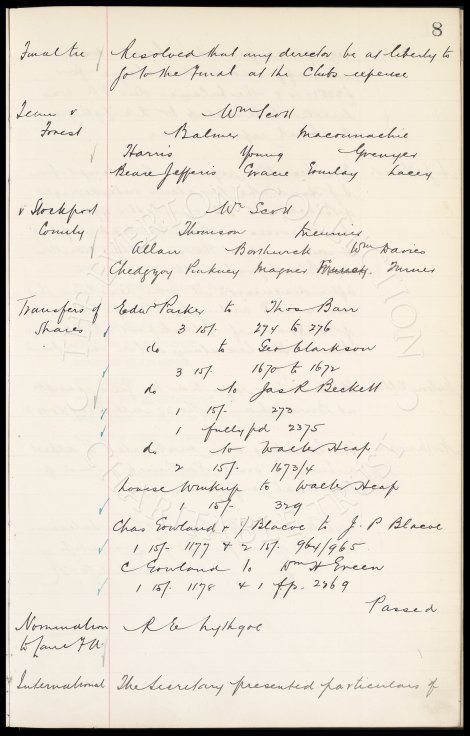 8
Final tie Resolved that any director be at liberty to
go to the Final at the Clubs expense
Team v Wm Scott
Forest Balmer Maconnachie
Harris Young Grenyer
Beare Jefferis Gracie Gourlay Lacey
v Stockport Wm Scott
County Thomson Meunier
Allan Borthwick Wm Davies
Chedgzoy Pinkney Magner Turner
Transfers of Edwd Parker to Thos Barr
Shares 3 15/- 274 to 276
do to Geo Clarkson
3 15/- 1670 to 1672
do to Jas R Beckett
1 15/- 273
1 fully pd 2375
do to Walter Heap
2 15/- 1673/4
Louise Winkup to Walter Heap
1 15/- 329
Chas Gowland & J Blacoe to J. P Blacoe
1 15/- 1177 & 2 15/- 964/965.
C Gowland to Wm H Green
1 15/- 1178 & 1 f.p. 2369
Passed
Nomination R E Lythgoe
to Lanc F.A.
International The Secretary presented particulars of